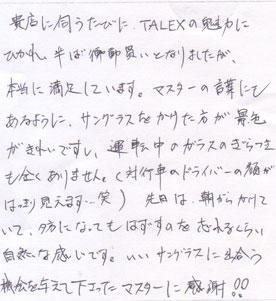 貴店に伺うたびに、TALEXの魅力に
ひかれ、半ば衝動買いとなりましたが、
本当に満足しています。マスターの言葉にも
あるように、サングラスをかけた方が景色
がきれいですし、運転中のガラスのぎらつき
も全くありません。(対行車のドライバーの顔が
はっきり見えます…笑) 先日は、朝からかけて
いて、夕方になってもはずすのを忘れるくらい
自然な感じです。いいサングラスに出会う
機会を与えて下さったマスターに感謝!!